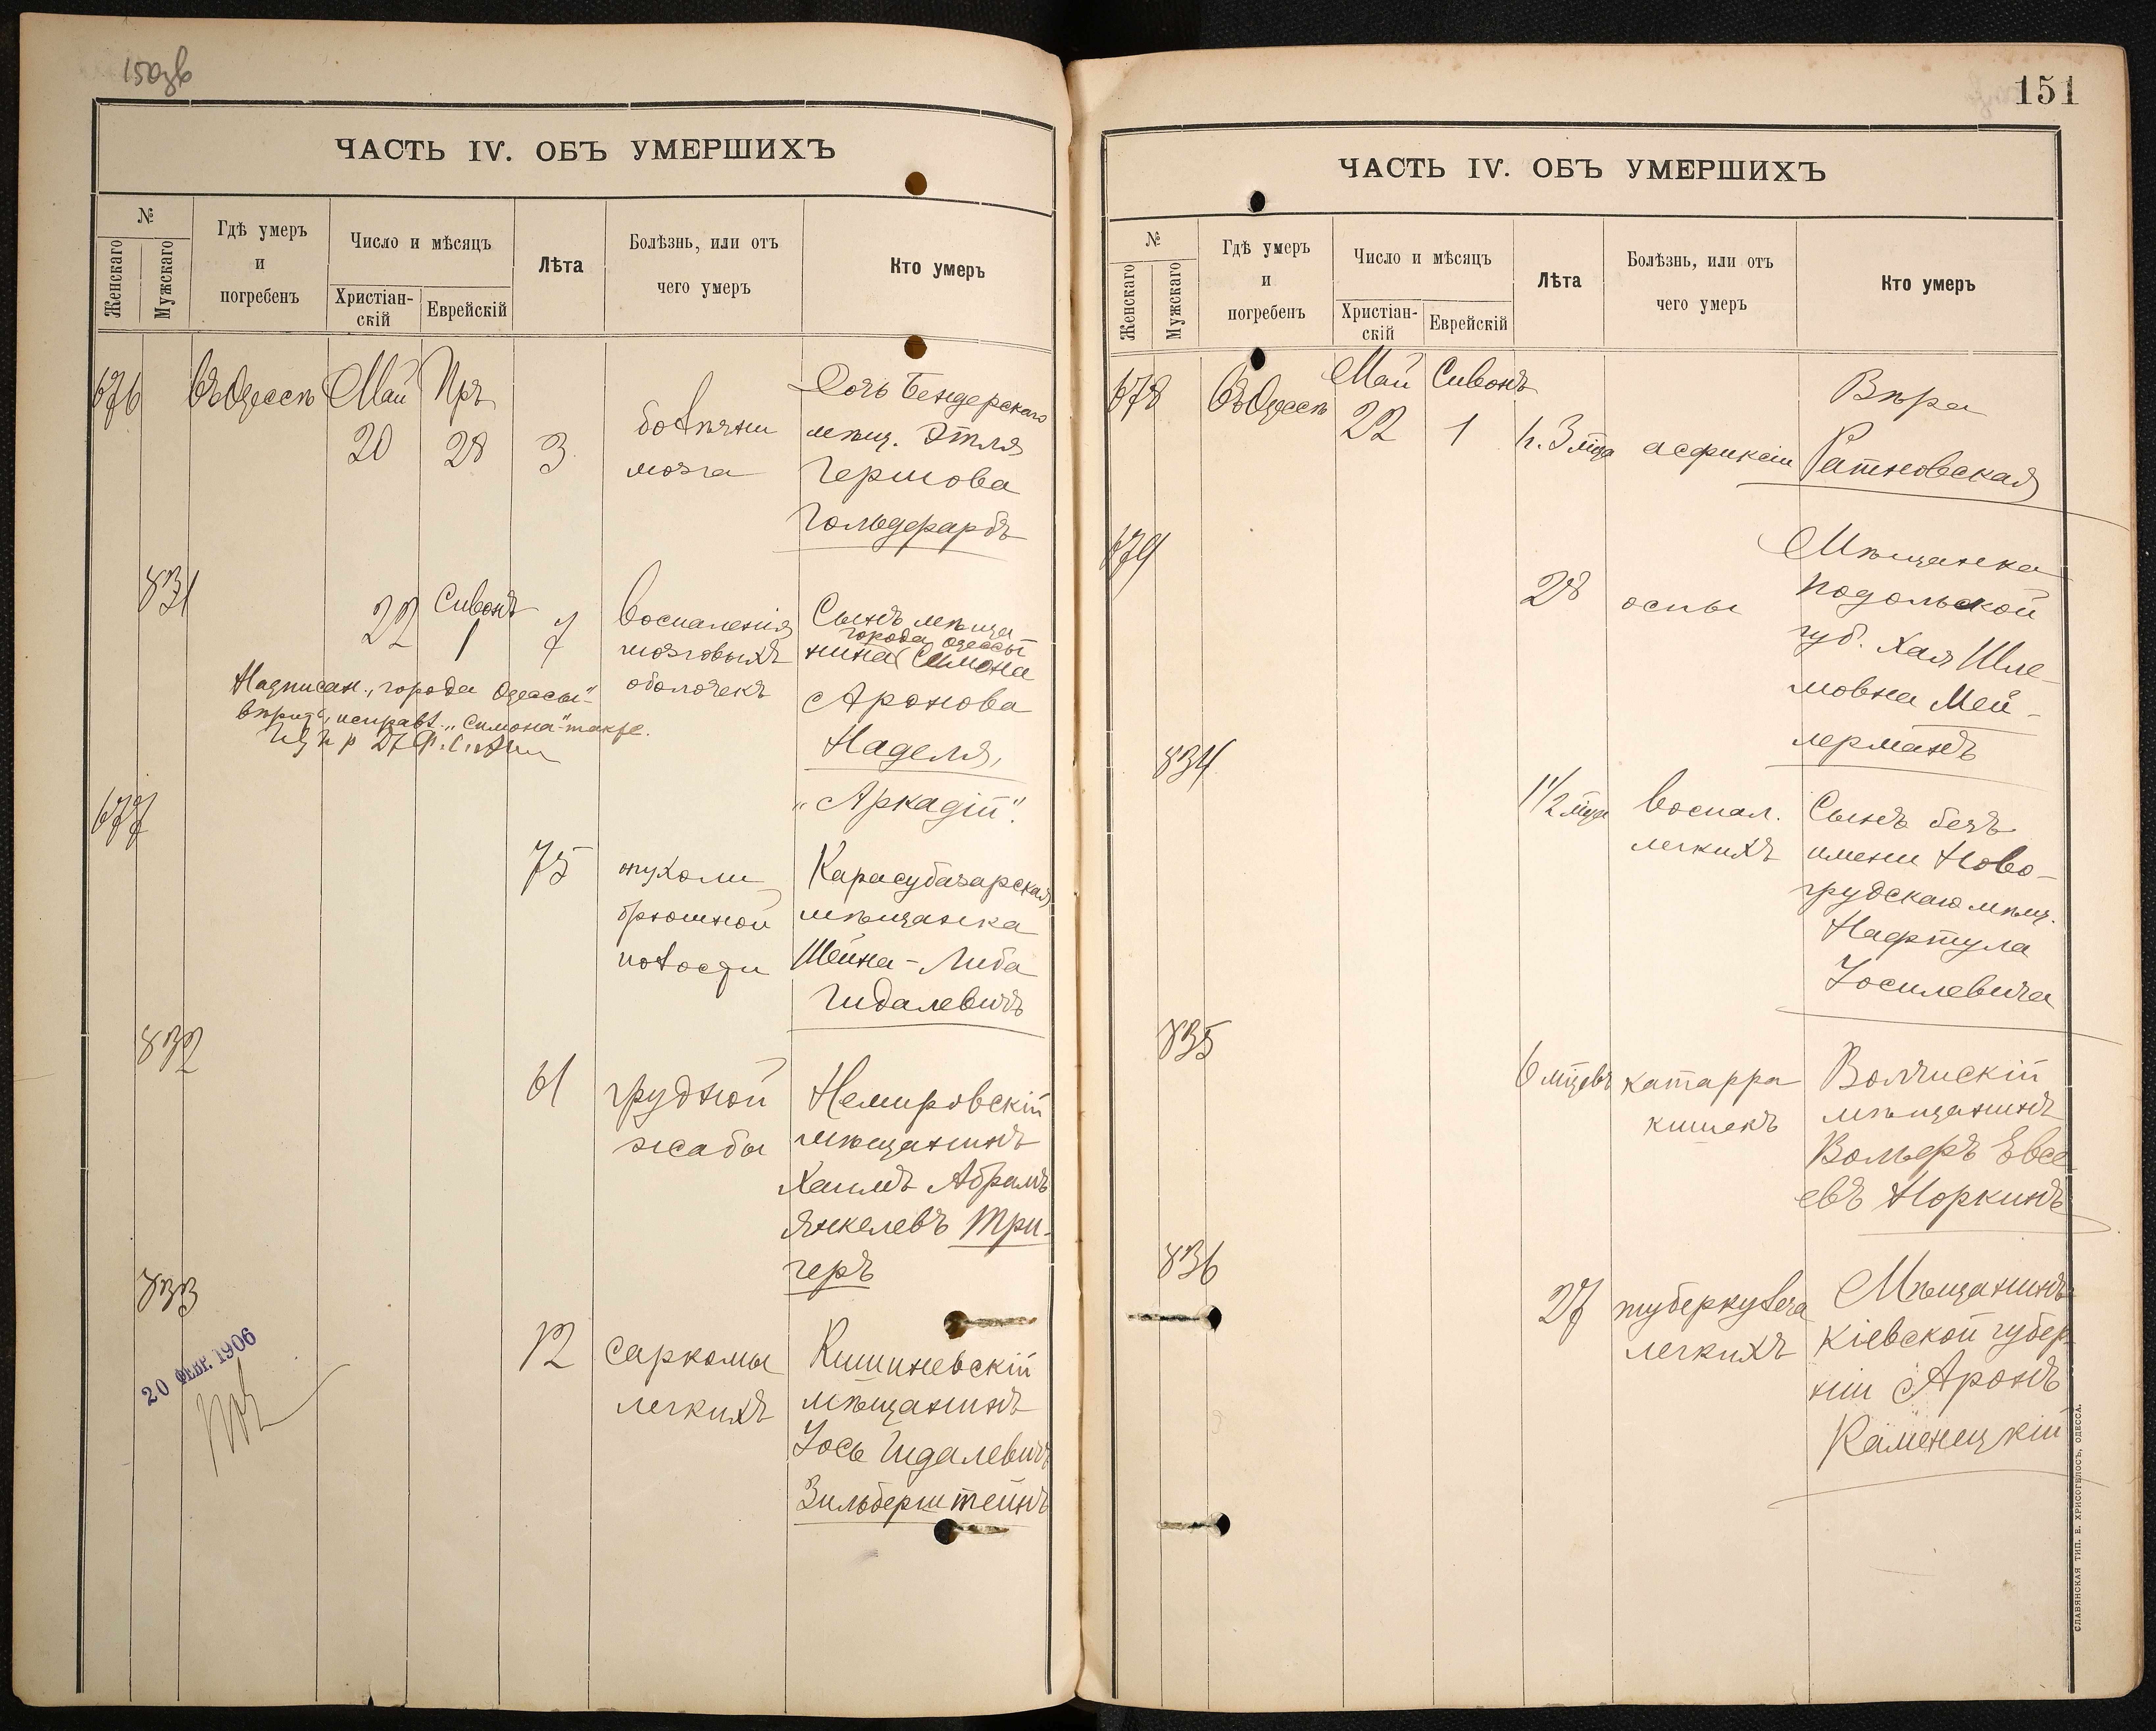 ЧАСТЬ IV. ОБЪ УМЕРШИХЪ
№
Женскаго
Мужскаго
Гдѣ умеръ
и
погребенъ
Число и мѣсяцъ
Христіан-
скій
Еврейскій
Лѣта
Болѣзнь, или отъ
чего умеръ
Кто умеръ
676
въ Одессѣ
Май
20
Iяръ
28
3
болѣзни
мозга
Дочь Бендерскаго
мѣщ. Этля
Гершова
Гольдфарбъ
831
22
Сивонъ
1
7
воспаленія
мозговыхъ
оболочекъ
Сынъ мѣща
города Одессы
нина Симона
Аронова
Наделя,
"Аркадій".
Надписан. "города Одессы"
вѣрить, исправл. "Симона" также.
677
75
опухоли
брюшной
полости
Карасубазарская
мѣщанка
Шейна-Либа
Гидалевичъ
832
61
грудной
жабы
Немировскій
мѣщанинъ
Хаимъ Абрамъ
Янкелевъ Три-
геръ
833
12
саркомы
легкихъ
Кишиневскій
мѣщанинъ
Іось Гидалевичъ
Зильберштейнъ
20 ФЕВР. 1906
151
ЧАСТЬ IV. ОБЪ УМЕРШИХЪ
№
Женскаго
Мужскаго
Гдѣ умеръ
и
погребенъ
Число и мѣсяцъ
Христіан-
скій
Еврейскій
Лѣта
Болѣзнь, или отъ
чего умеръ
Кто умеръ
678
въ Одессѣ
Май
22
Сивонъ
1
3 мѣца
асфиксіи
Вѣра
Ратновская
679
28
оспы
Мѣщанка
Подольской
губ. Хая Шле-
мовна Мей-
лерманъ
834
1 1/2 мѣца
воспал.
легкихъ
Сынъ безъ
имени Ново-
грудскаго мѣщ.
Нафтула
Іосилевича
835
6 мѣцевъ
катарра
кишекъ
Волчискій
мѣщанинъ
Вольфъ Евсе
евъ Норкинъ
836
27
туберкулеза
легкихъ
Мѣщанинъ
Кіевской губер-
ніи Аронъ
Каменецкій
СЛАВЯНСКАЯ ТИП. Е. ХРИСОГЕЛОСЪ, ОДЕССА.